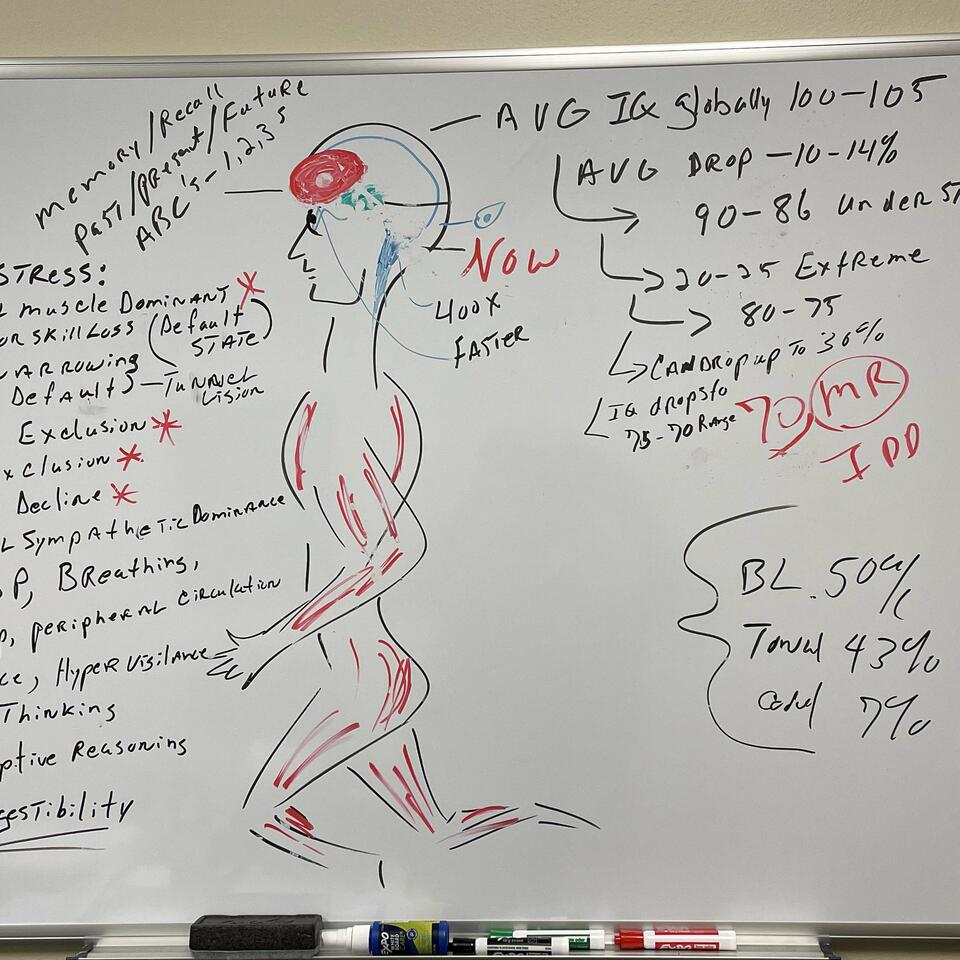 memory/Recall
past/present/Future
ABC's-1,2,3's
STRESS:
muscle Dominant
OR skill Loss (Default
STATE)
NARROWING
Default) — Tunnel
Vision
Exclusion
xclusion
Decline
L Sympathetic Dominance
P, BReathing,
p, peripheral circulation
ce, Hyper Vigilance
Thinking
ptive Reasoning
gestibility
AVG IQ globally 100-105
AVG DROP -10-14%
90-86 under ST
20-25 Extreme
80-75
CAN DROP up To 30%
IQ drops to
75-70 Range
70 MR
IDD
NOW
400X
FASTER
BL. 50%
Tonal 43%
7%
EXPO
EXPO